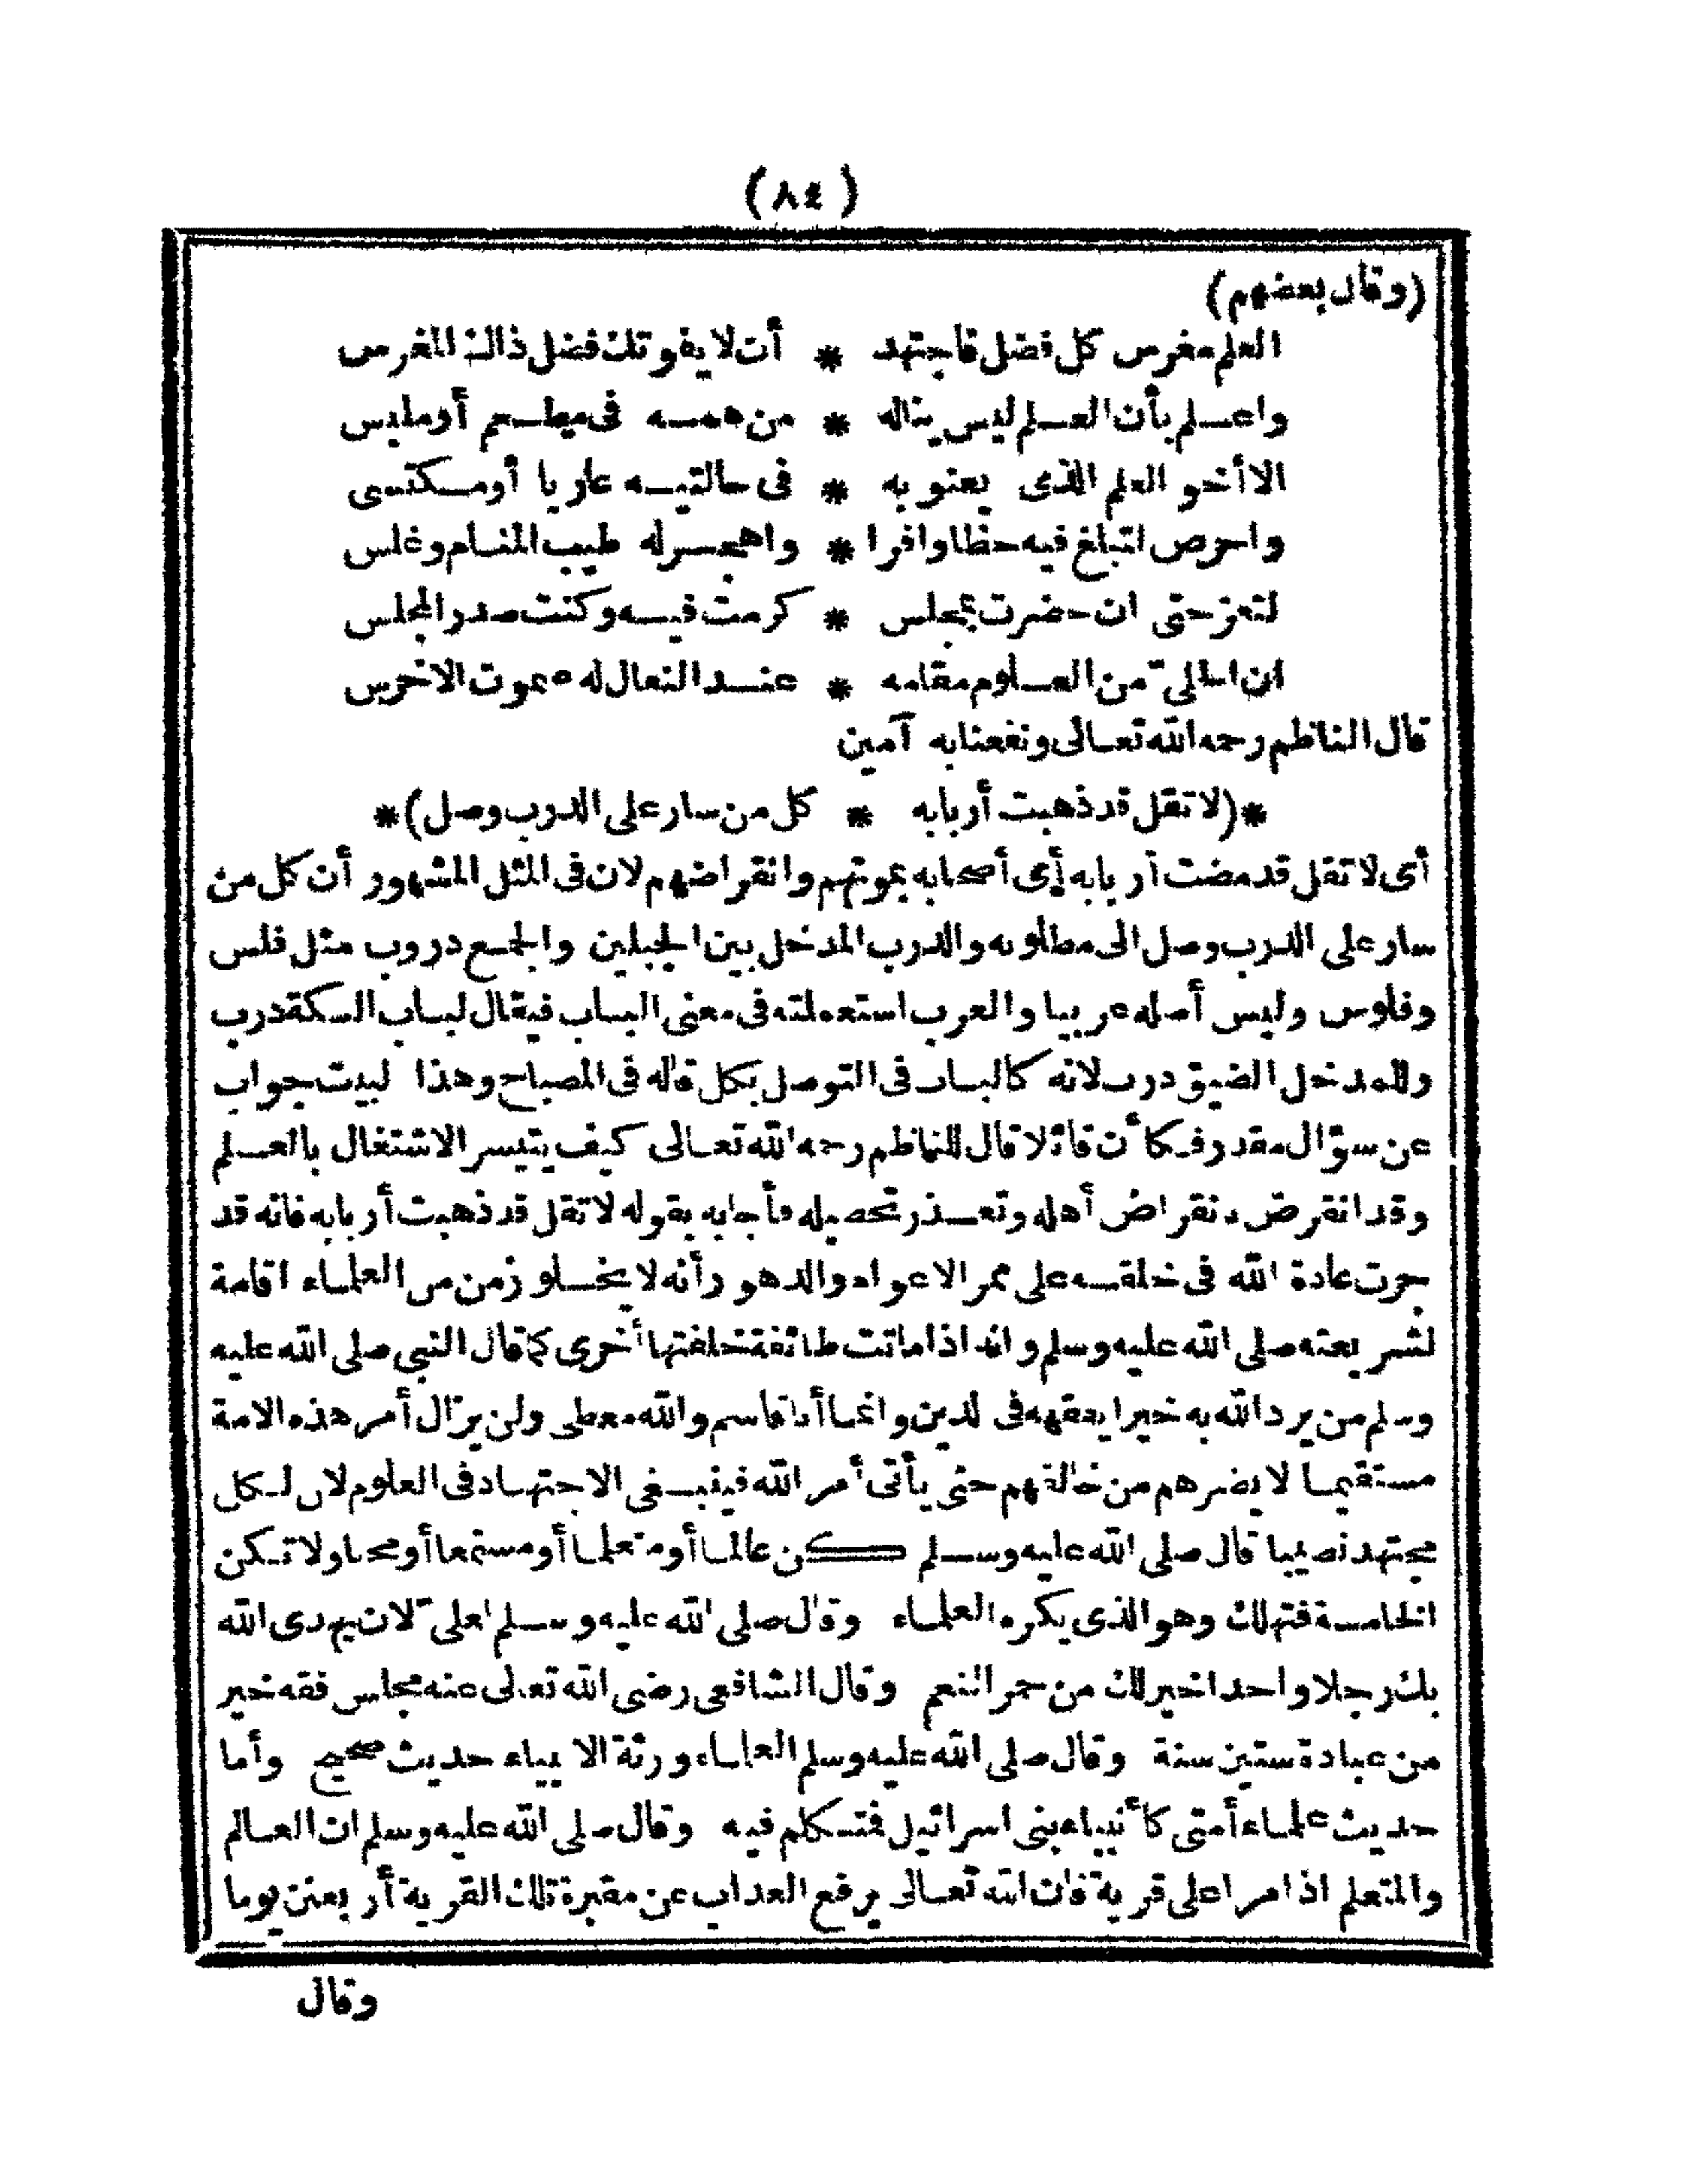 (٨٤)
(وقال بعضهم)
العلم مغرس كل فضل فاجتهد * أن لا يفوتك فضل ذاك المغرس
واعلم بأن العلم ليس يناله * من همه فى مطعم أو ملبس
الا أخو العلم الذى يعنو به * فى حالتيه عاريا أو مكتسى
واحرص لتبلغ فيه حظا وافرا * واهجر له طيب المنام وغلس
لتعز حتى ان حضرت بمجلس * كرمت فيه وكنت صدر المجلس
ان من العلوم مقامه * عند النعال له الاخرس
قال الناظم رحمه الله تعالى ونفعنا به آمين
*(لا تقل قد ذهبت أربابه * كل من سار على الدرب وصل)*
أى لا تقل قد مضت أربابه أى أصحابه بموتهم وانقراضهم لان فى المثل المشهور أن كل من
سار على الدرب وصل الى مطلوبه والدرب المدخل بين الجبلين والجمع دروب مثل فلس
وفلوس وليس أصله عربيا والعرب استعملته فى معنى الباب فيقال لباب السكة درب
وللمدخل الضيق درب لانه كالباب فى التوصل بكل قاله فى المصباح وهذا لبيت جواب
عن سؤال مقدر فكأن قائلا قال للناظم رحمه الله تعالى كيف يتيسر الاشتغال بالعلم
وقد انقرض بانقراض أهله وتعذر تحصيله فأجابه بقوله لا تقل قد ذهبت أربابه فانه قد
جرت عادة الله فى خلقه على ممر الاعوام والدهور أنه لا يخلو زمن من العلماء اقامة
لشريعته صلى الله عليه وسلم وانه اذا ماتت طائفة خلفتها أخرى كما قال النبى صلى الله عليه
وسلم من يرد الله به خيرا يفقهه فى لدين وانما أنا قاسم والله معطى ولن يزال أمر هذه الامة
مستقيما لا يضرهم من خالفهم حتى يأتى أمر الله فينبغى الاجتهاد فى العلوم لان لكل
مجتهد نصيبا قال صلى الله عليه وسلم كن عالما أو متعلما أو مستمعا أو محبا ولا تكن
الخامسة فتهلك وهو الذى يكره العلماء وقال صلى الله عليه وسلم لعلى لان يهدى الله
بك رجلا واحدا خير لك من حمر النعم وقال الشافعى رضى الله تعالى عنه مجلس فقه خير
من عبادة ستين سنة وقال صلى الله عليه وسلم العلماء ورثة الانبياء حديث صحيح وأما
حديث علماء أمتى كأنبياء بنى اسرائيل فتكلم فيه وقال صلى الله عليه وسلم ان العالم
والمتعلم اذا مرا على قرية فان الله تعالى يرفع العذاب عن مقبرة تلك القرية أربعين يوما
وقال